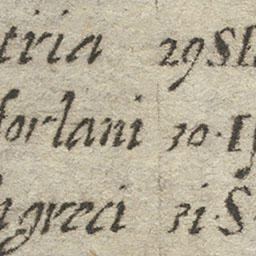 tria 29 SL
forlani 30. I
greci 31. S